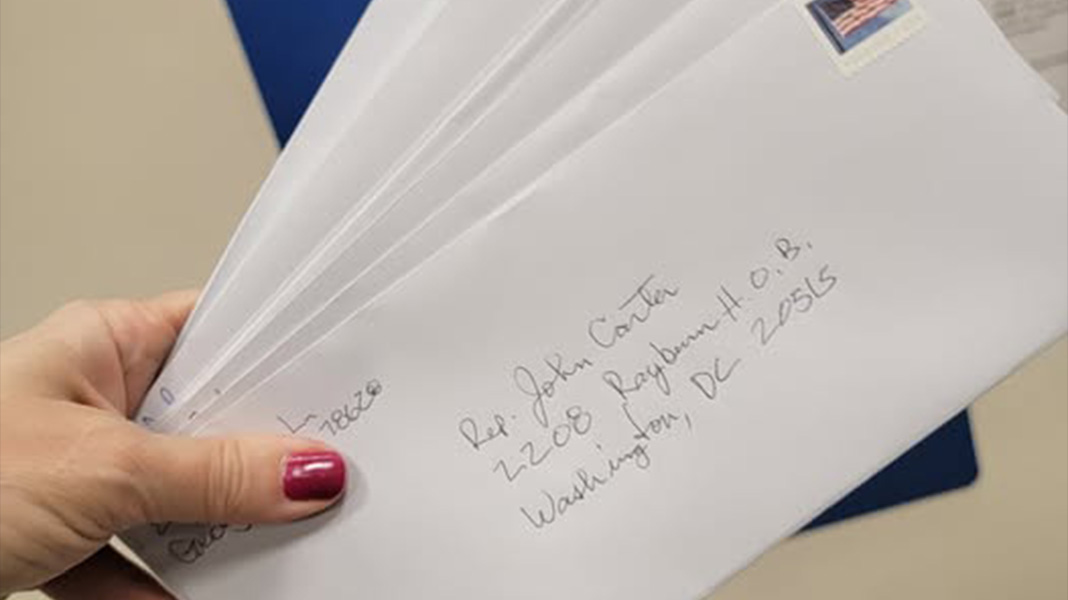 Rep. John Carter
2208 Rayburn H.O.B.
Washington, DC 20515
Ln